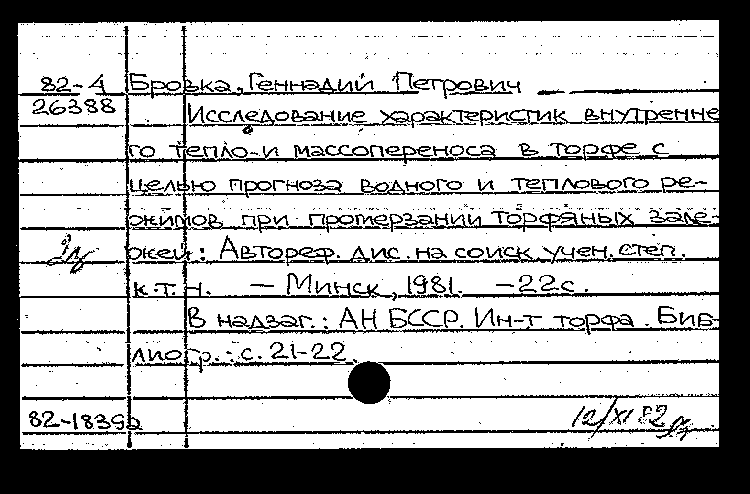 82-4 Бровка, Геннадий Петрович
26388 Исследование характеристик внутренне
го тепло-и массопереноса в торфе с
целью прогноза водного и теплового ре-
жимов при промерзании торфяных зале-
жей: Автореф. дис. на соиск. учен. степ.
к.т.н. — Минск, 1981. -22с.
В надзаг.: АН БССР. Ин-т торфа. Биб-
лиогр.: с. 21-22.
82-18392 12/XI 82